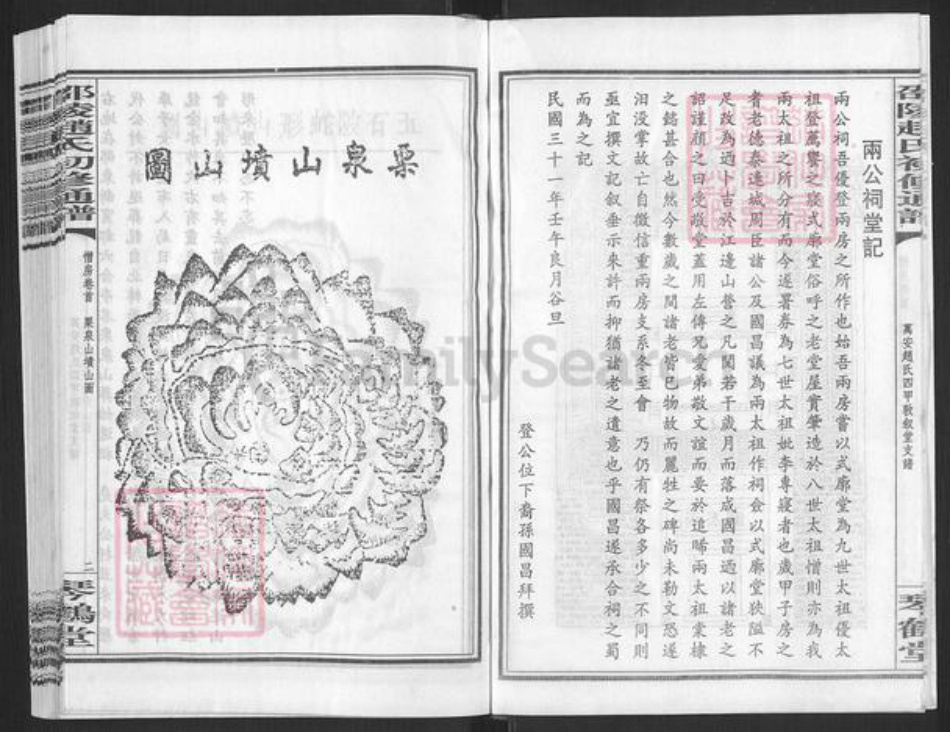 兩公祠堂記
兩公祠吾優登兩房之所作也始吾兩房嘗以式廓堂為九世太祖優太
祖登薦饗之寢式廓堂俗呼之老堂屋實肇造於八世太祖憎則亦為我
兩太祖之所分有而今遂署券為七世太祖妣李專寢者也歲甲子房之
者老德泰達城周臣諸公及國昌議為兩太祖作祠僉以式廓堂狹隘不
足改為迺卜吉於江邊山營之凡閱若干歲月而落成國昌迺以諸老之
詔謹顏之曰受敬堂蓋用左傳兄愛弟敬文誼而要於追晞兩太祖棠棣
之懿甚合也然今數歲之間諸老皆已物故而麗牲之碑尚未勒文恐遂
汨沒掌故亡自徵信重兩房支系冬至會 乃仍有祭各多少之不同則
亟宜撰文記叙垂示來許而抑猶諸老之遺意也乎國昌遂承合祠之蜀
而為之記
民國三十一年壬午良月谷旦
登公位下裔孫國昌拜撰
邵陵趙氏初修通譜
萬安趙氏四甲敦叙堂支譜
琴鶴堂
栗泉山墳山圖
邵陵趙氏初修通譜
憎房卷首 栗泉山墳山圖
二
琴鶴堂
FamilySearch